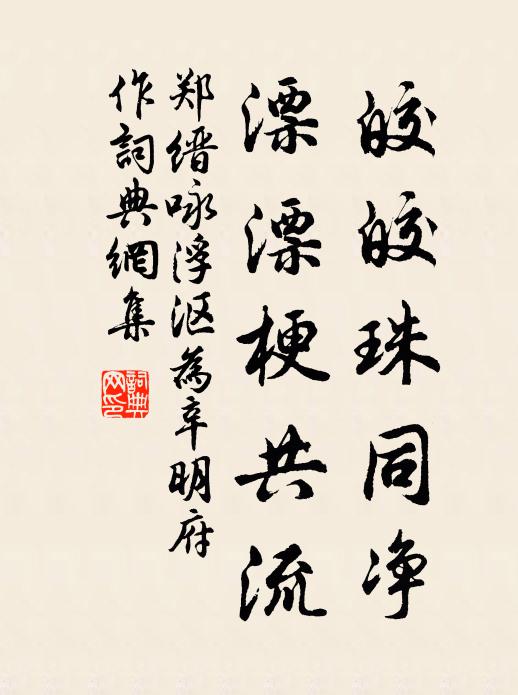 皎皎珠同净
漂漂梗共流
郑缙咏浮沤為辛明府
作詞典網集
詞典網印